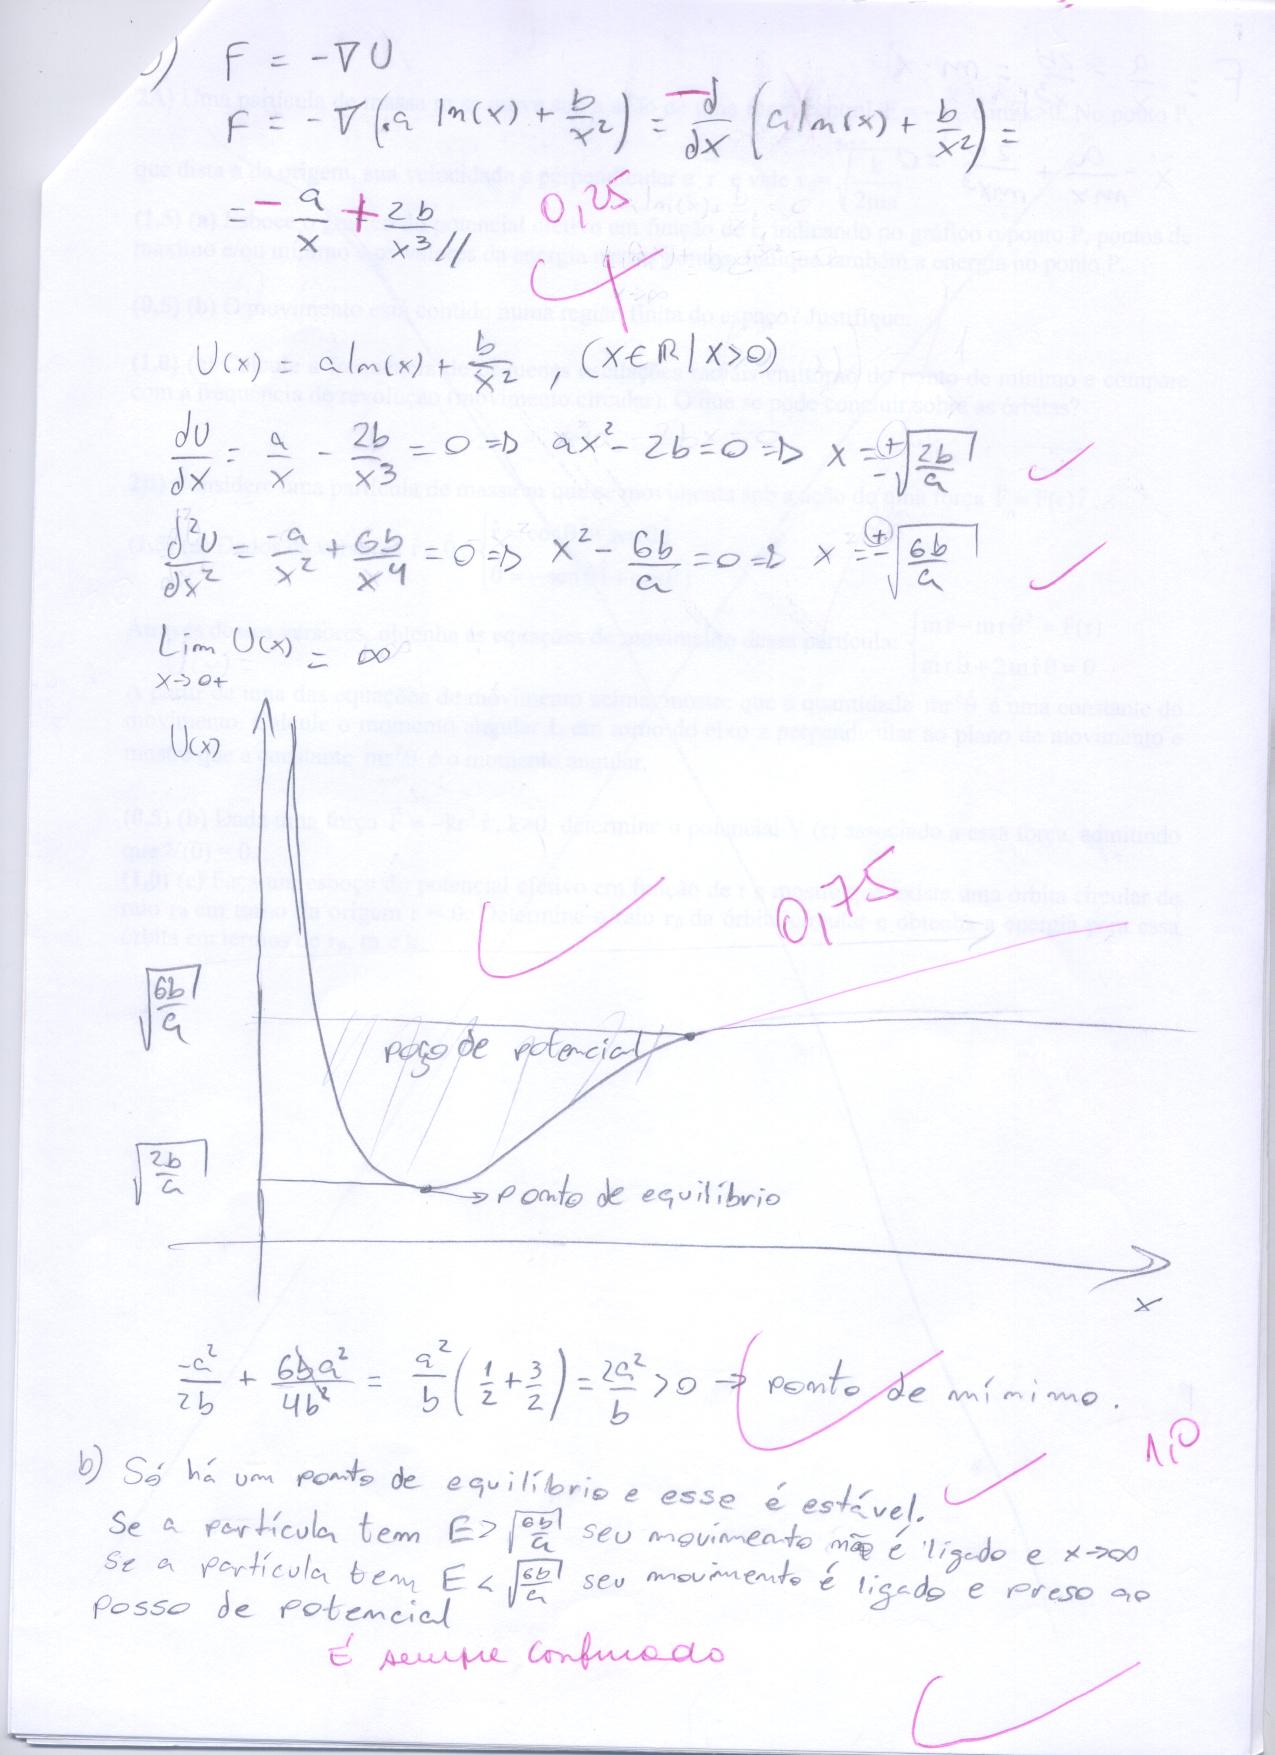 ) F = -∇U
F = -∇(a ln(x) + b/x²) = - d/dx (a ln(x) + b/x²) =
= - a/x + 2b/x³ // 0,25
U(x) = a ln(x) + b/x² , (x ∈ ℝ | x>0)
dU/dx = a/x - 2b/x³ = 0 => ax² - 2b = 0 => x = ±√(2b/a)
d²U/dx² = -a/x² + 6b/x⁴ = 0 => x² - 6b/a = 0 => x = ±√(6b/a)
Lim x→0+ U(x) = ∞
U(x)
0,75
√(6b/a)
poço de potencial
√(2b/a)
ponto de equilíbrio
x
-a²/2b + 6ba²/4b² = a²/b (1/2 + 3/2) = 2a²/b > 0 => ponto de mínimo.
1,0
b) Só há um ponto de equilíbrio e esse é estável.
Se a partícula tem E > √(6b/a) seu movimento não é ligado e x→∞
Se a partícula tem E < √(6b/a) seu movimento é ligado e preso ao
posso de potencial
É sempre confinado